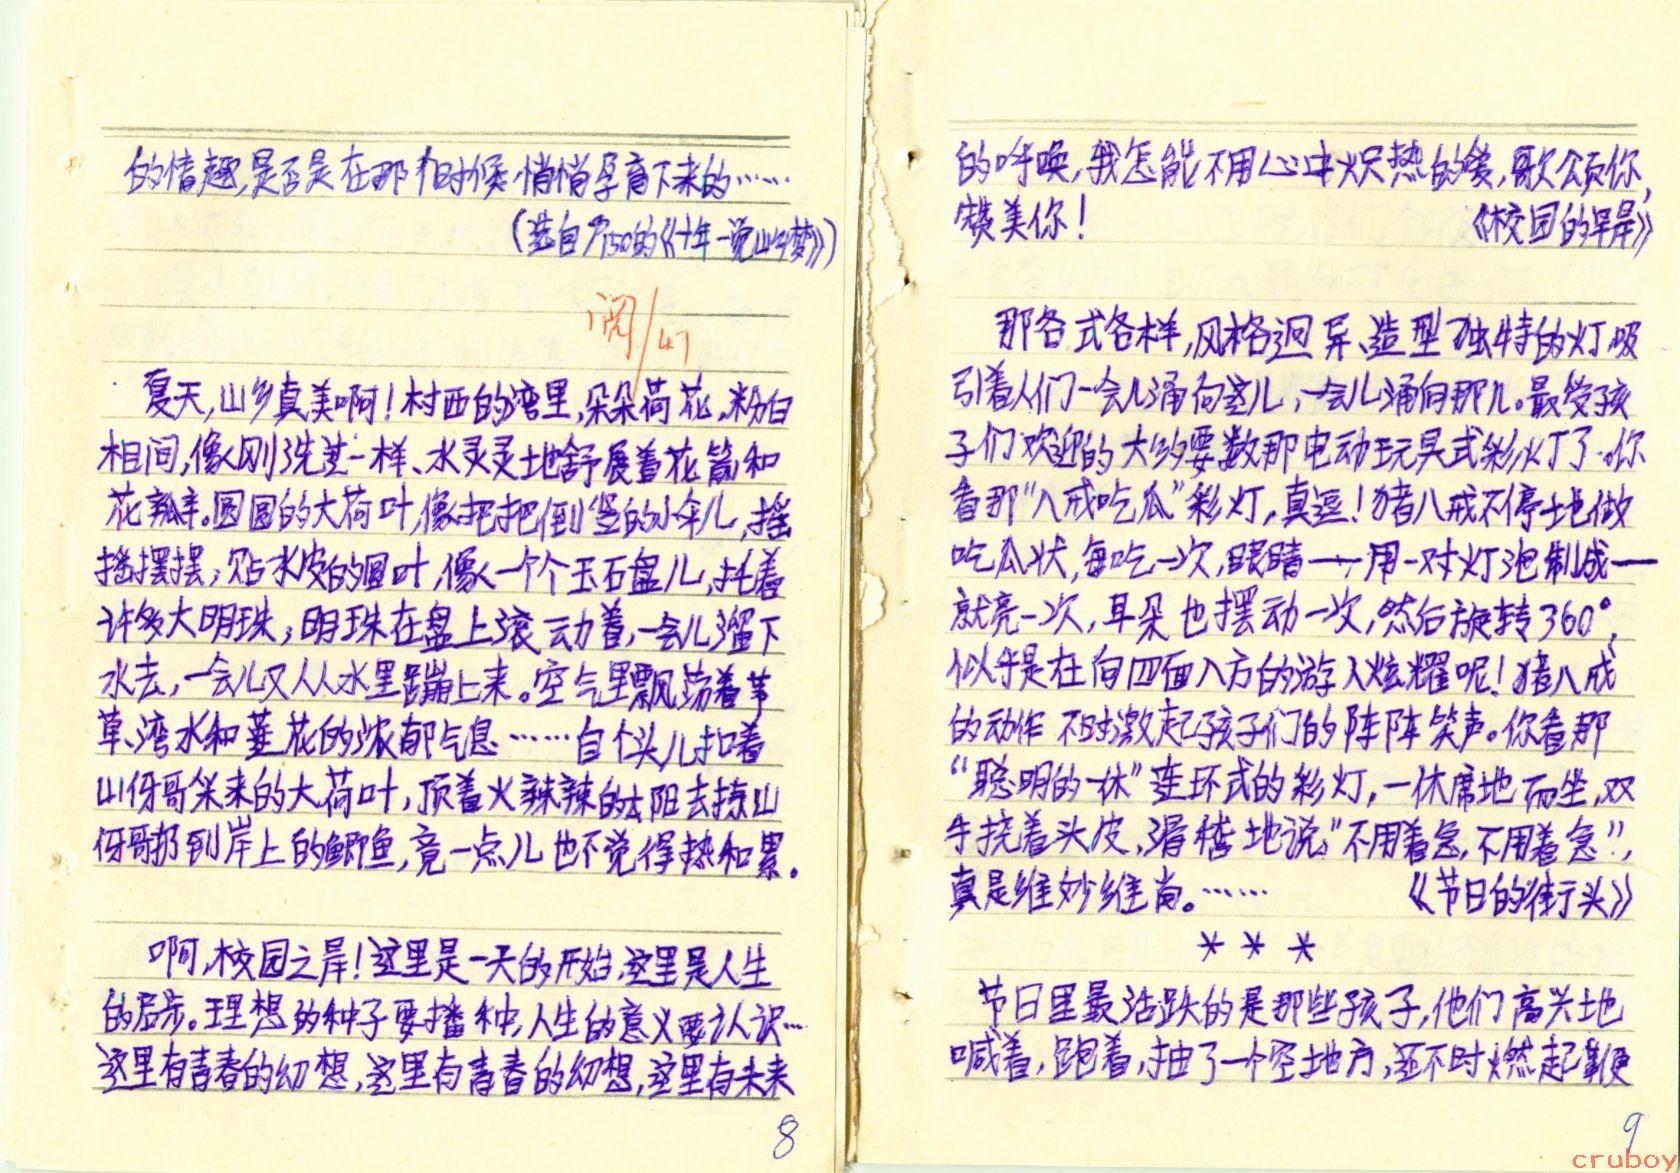 的情趣,是否是在那个时候悄悄孕育下来的……
(选自P150的《十年一觉山乡梦》)
阅
夏天,山乡真美啊!村西的湾里,朵朵荷花,粉白
相间,像刚洗过一样、水灵灵地舒展着花篇和
花瓣。圆圆的大荷叶,像把把倒竖的小伞儿,摇
摇摆摆;贴水皮的圆叶,像一个个玉石盘儿,托着
许多大明珠;明珠在盘上滚动着,一会儿溜下
水去,一会儿又从水里蹦上来。空气里飘荡着苇
草、湾水和菱花的浓郁气息……自个头儿扣着
山伢哥采来的大荷叶,顶着火辣辣的太阳去捡山
伢哥扔到岸上的鲫鱼,竟一点儿也不觉得热和累。
啊,校园之岸!这里是一天的开始,这里是人生
的启步。理想的种子要播种,人生的意义要认识…
这里有青春的幻想,这里有青春的幻想,这里有未来
8
的呼唤,我怎能不用心中炽热的爱,歌颂你,
赞美你!《校园的早岸》
那各式各样,风格迥异、造型独特的灯吸
引着人们一会儿涌向这儿,一会儿涌向那儿。最受孩
子们欢迎的大约要数那电动玩具式彩灯了。你
看那“八戒吃瓜”彩灯,真逗!猪八戒不停地做
吃瓜状,每吃一次,眼睛——用一对灯泡制成——
就亮一次,耳朵也摆动一次,然后旋转360°,
似乎是在向四面八方的游人炫耀呢!猪八戒
的动作不时激起孩子们的阵阵笑声。你看那
“聪明的一休”连环式的彩灯,一休席地而坐,双
手挠着头皮,滑稽地说:“不用着急,不用着急!”,
真是维妙维肖。……《节日的街头》
* * *
节日里最活跃的是那些孩子,他们高兴地
喊着,跑着,抽了一个空地方,还不时燃起鞭
9
cruboy